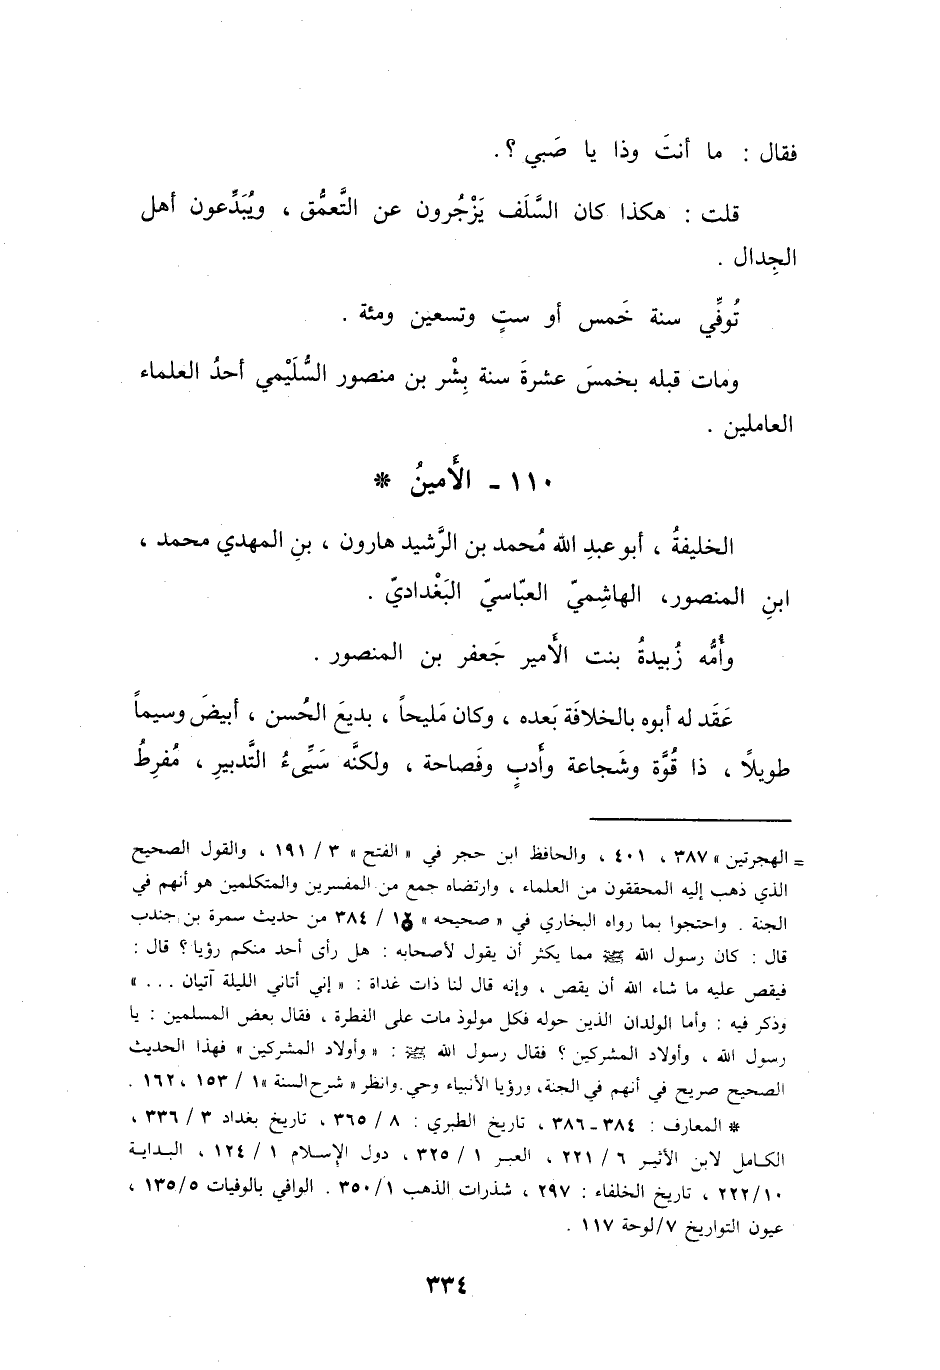 فقال : ما أنتَ وذا يا صَبي ؟.
قلت : هكذا كان السَّلَف يَزْجُرون عن التَّعمُّق ، ويُبَدِّعون أهل
الجِدال .
تُوفِّي سنة خَمس أو ستٍ وتسعين ومئة .
ومات قبله بخمسَ عشرةَ سنة بِشْر بن منصور السُّلَيْمي أحدُ العلماء
العاملين .
١١٠ - الأَمينُ *
الخليفةُ ، أبو عبدِ الله مُحمد بن الرَّشيد هارون ، بنِ المهدي محمد ،
ابنِ المنصور، الهاشِميّ العبّاسيّ البَغْداديّ .
وأُمُّه زُبيدةُ بنت الأَمير جَعفر بن المنصور .
عَقَد له أبوه بالخلافَة بَعده ، وكان مَليحاً ، بديعَ الحُسن ، أبيضَ وسيماً
طويلاً ، ذا قُوَّة وشَجاعة وأَدبٍ وفَصاحة ، ولكنَّه سَيِّىءُ التَّدبيرِ ، مُفرِطُ
= الهجرتين » ٣٨٧ ، ٤٠١ ، والحافظ ابن حجر في « الفتح » ٣ / ١٩١ ، والقول الصحيح
الذي ذهب إليه المحققون من العلماء ، وارتضاه جمع من المفسرين والمتكلمين هو أنهم في
الجنة . واحتجوا بما رواه البخاري في « صحيحه » / ٣٨٤ من حديث سمرة بن جندب
قال : كان رسول الله ﷺ مما يكثر أن يقول لأصحابه : هل رأى أحد منكم رؤيا ؟ قال :
فيقص عليه ما شاء الله أن يقص ، وإنه قال لنا ذات غداة : « إني أتاني الليلة آتيان . . . »
وذكر فيه : وأما الولدان الذين حوله فكل مولوذ مات على الفطرة ، فقال بعض المسلمين : يا
رسول الله ، وأولاد المشركين ؟ فقال رسول الله ﷺ : « وأولاد المشركين » فهذا الحديث
الصحيح صريح في أنهم في الجنة، ورؤيا الأنبياء وحي. وانظر « شرح السنة »١ / ١٥٣ ، ١٦٢ .
* المعارف : ٣٨٤ - ٣٨٦ ، تاريخ الطبري : ٨ / ٣٦٥ ، تاريخ بغداد ٣ / ٣٣٦ ،
الكامل لابن الأثير ٦ / ٢٢١ ، العبر ١ / ٣٢٥ ، دول الإسلام ١ / ١٢٤ ، البداية
٢٢٢/١٠ ، تاريخ الخلفاء : ٢٩٧ ، شذرات الذهب ٣٥٠/١ . الوافي بالوفيات ١٣٥/٥ ،
عيون التواريخ ٧/لوحة ١١٧ .
٣٣٤